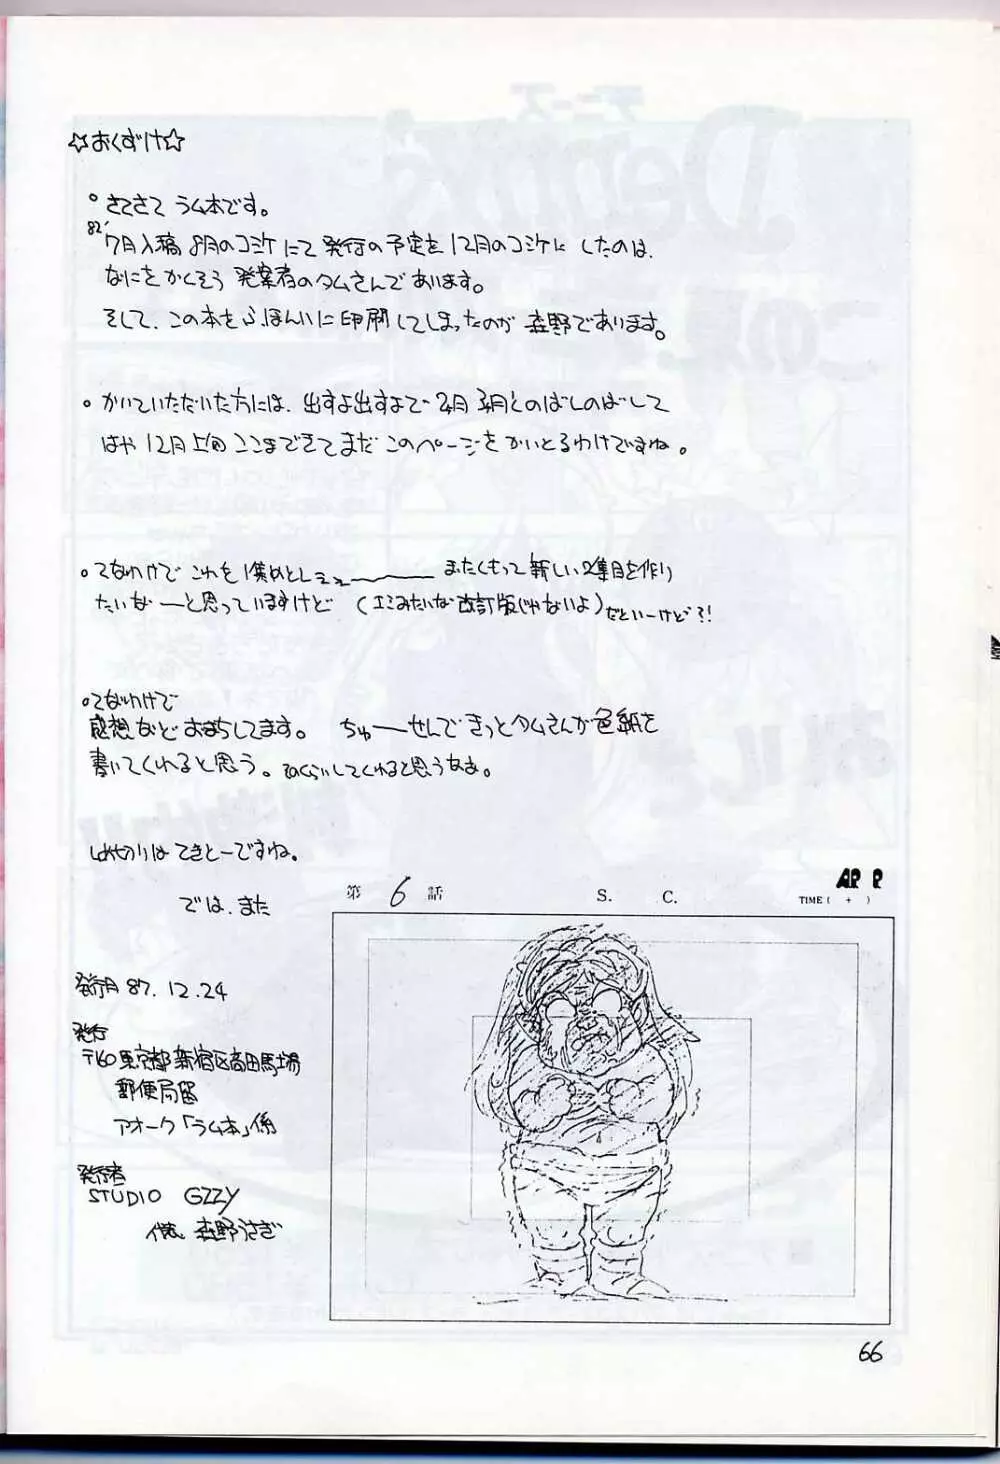 ☆おくずけ☆
。さてさて ラム本です。
82'
7月入稿 8月のコミケにて発行の予定を12月のコミケにしたのは、
なにをかくそう 発案者のタムさんであります。
そして、この本をふほんいに印刷してしまったのが 森野であります。
。かいていただいた方には、出すよ出すよで 2月 3月とのばしのばして
はや12月上旬 ここまできてまだこのページをかいとるわけですね。
。てなわけで これを1集めとし まったくもって新しい2集目を作り
たいなーと思っていますけど (エミみたいな改訂版じゃないよ) だといーけど?!
。てなわけで
感想などおまちしてます。 ちゅーせんできっとタムさんが色紙を
書いてくれると思う。そのくらいしてくれると思うなぁ。
〆切りは てきとーですね。
では、また
第 6 話 S. C. TIME ( + )
発行月 87.12.24
発行
〒160 東京都新宿区高田馬場
郵便局留
アオーク「ラム本」係
発行者
STUDIO GZZY
代表 森野うさぎ
66
Denny's
デニーズ
この夏